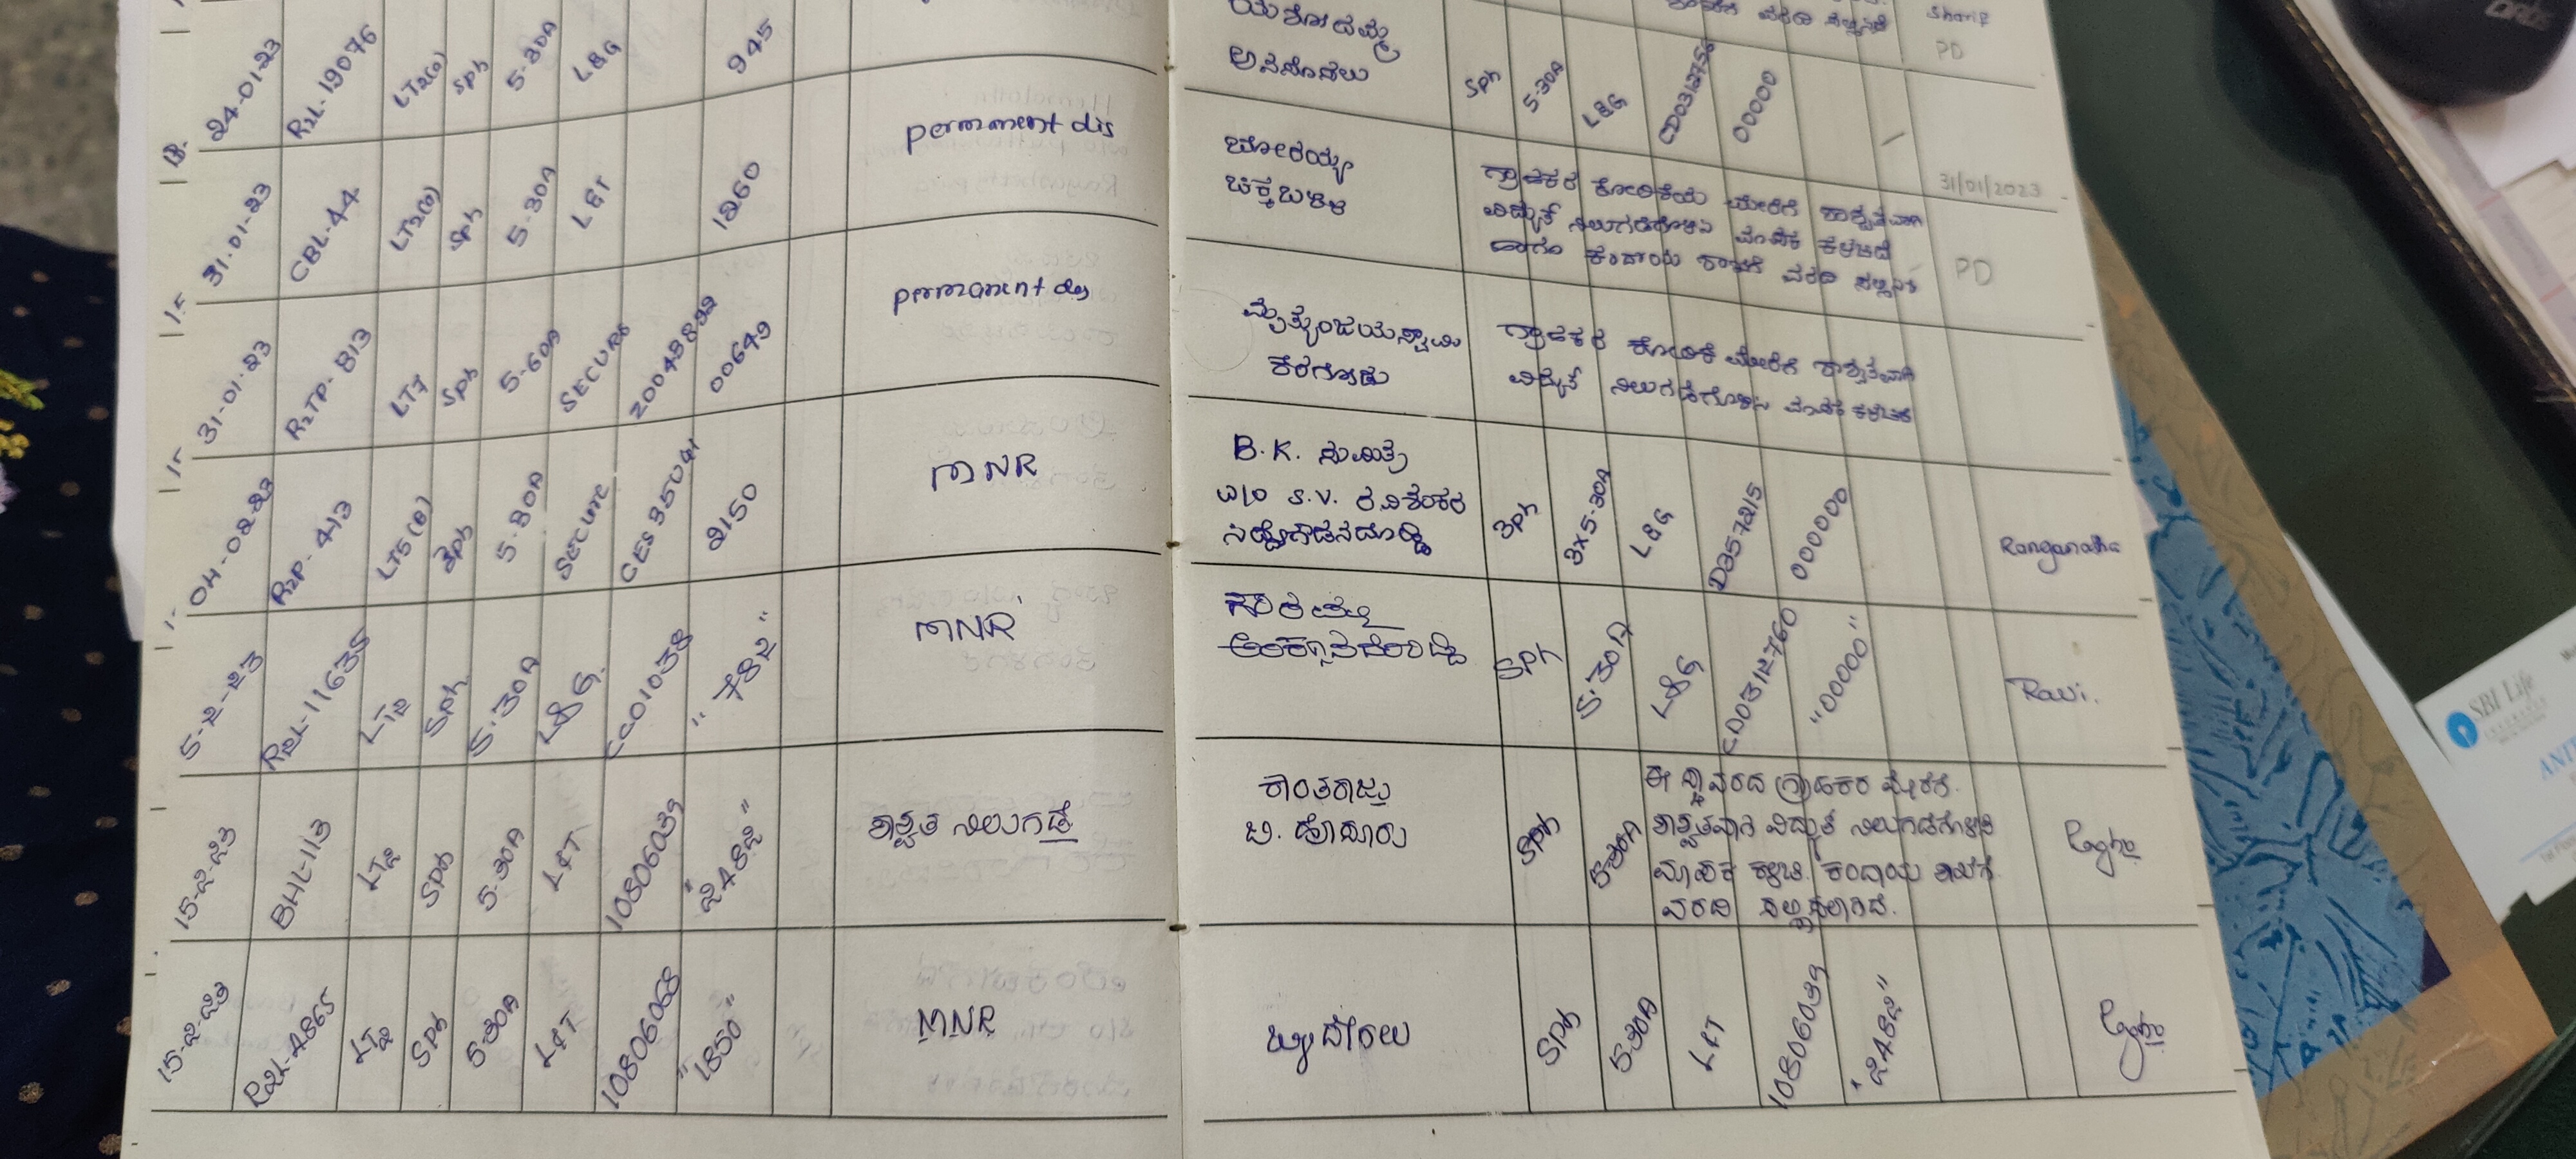 Sharif
24-01-23 R2L-19076 LT2(a) Sph 5-30A L&G 945
ಯಶೋದಮ್ಮ
Sph 5-30A L&G CD0312756 00000
PD
18.
31-01-23 CBL-44 LT2(a) Sph 5-30A L&T 1260 permanent dis
ಬೋರಯ್ಯ
ಚಿಕ್ಕಬಳ್ಳಿ
ಗ್ರಾಹಕರ ಕೋರಿಕೆಯ ಮೇರೆಗೆ ಶಾಶ್ವತವಾಗಿ
ವಿದ್ಯುತ್ ನಿಲುಗಡೆಗೊಳಿಸಿ ಮಾಪಕ ಕಳಚಿದೆ
ಹಾಗೂ ಕಂದಾಯ ಶಾಖೆಗೆ ವರದಿ ಸಲ್ಲಿಸಿದೆ
31/01/2023
PD
31-01-23 R2TP-813 LT7 Sph 5-60A SECURE 00649 permanent dis
ಮೃತ್ಯುಂಜಯಸ್ವಾಮಿ
ಕೆರಗೋಡು
ಗ್ರಾಹಕರ ಕೋರಿಕೆ ಮೇರೆಗೆ ಶಾಶ್ವತವಾಗಿ
ವಿದ್ಯುತ್ ನಿಲುಗಡೆಗೊಳಿಸಿ ಮಾಪಕ ಕಳಚಿದೆ
04-02-23 R2P-413 LT5(a) 3ph 5-30A Secure CES35041 2150 MNR
B.K. ಸುಮಿತ್ರ
w/o S.V. ರವಿಶಂಕರ
ಸಿದ್ದೇಗೌಡನದೊಡ್ಡಿ
3ph 3x5-30A L&G D357215 000000 Ranganatha
5-2-23 R2L-11635 LT2 Sph 5-30A L&G. CC01038 "782" MNR
ಗೌರಮ್ಮ
Sph 5-30A L&G CD0312760 "00000" Ravi.
15-2-23 BHL-113 LT2 Sph 5-30A L&T 10806039 "2482" ಶಾಶ್ವತ ನಿಲುಗಡೆ
ಕಾಂತರಾಜು
ಬಿ. ಹೊಸೂರು
Sph 5-30A
ಈ ಸ್ಥಾವರದ ಗ್ರಾಹಕರ ಮೇರೆಗೆ.
ಶಾಶ್ವತವಾಗಿ ವಿದ್ಯುತ್ ನಿಲುಗಡೆಗೊಳಿಸಿ
ಮಾಪಕ ಕಳಚಿ. ಕಂದಾಯ ಶಾಖೆಗೆ.
ವರದಿ ಸಲ್ಲಿಸಲಾಗಿದೆ.
Raghu
15-2-23 R2L-4865 LT2 Sph 5-30A L&T 10806068 "1850" MNR
Sph 5-30A L&T 10806039 "2482" Raghu
SBI Life